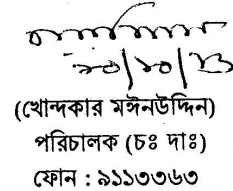 ২০/১০/১৩
(খোন্দকার মঈনউদ্দিন)
পরিচালক (চঃ দাঃ)
ফোন : ৯১১৩৩৬৩